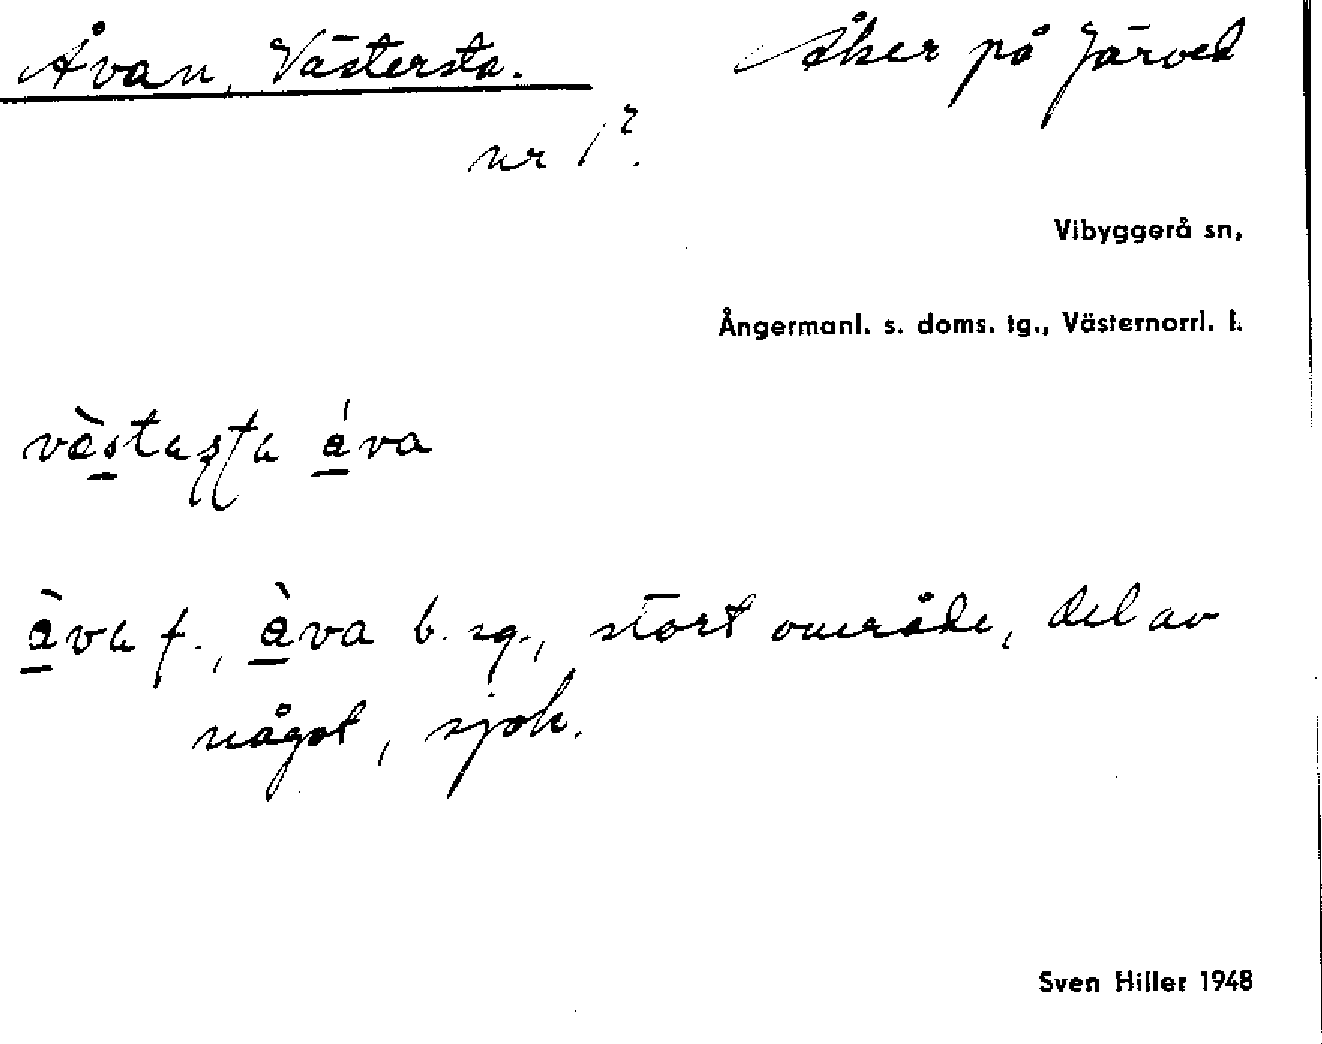 Åvan, Västersta.
Åker på Järved
nr 1².
Vibyggerå sn,
Ångermanl. s. doms. tg., Västernorrl. l.
våva f., åva b. sg., stort område, del av
något, sjök.
Sven Hiller 1948